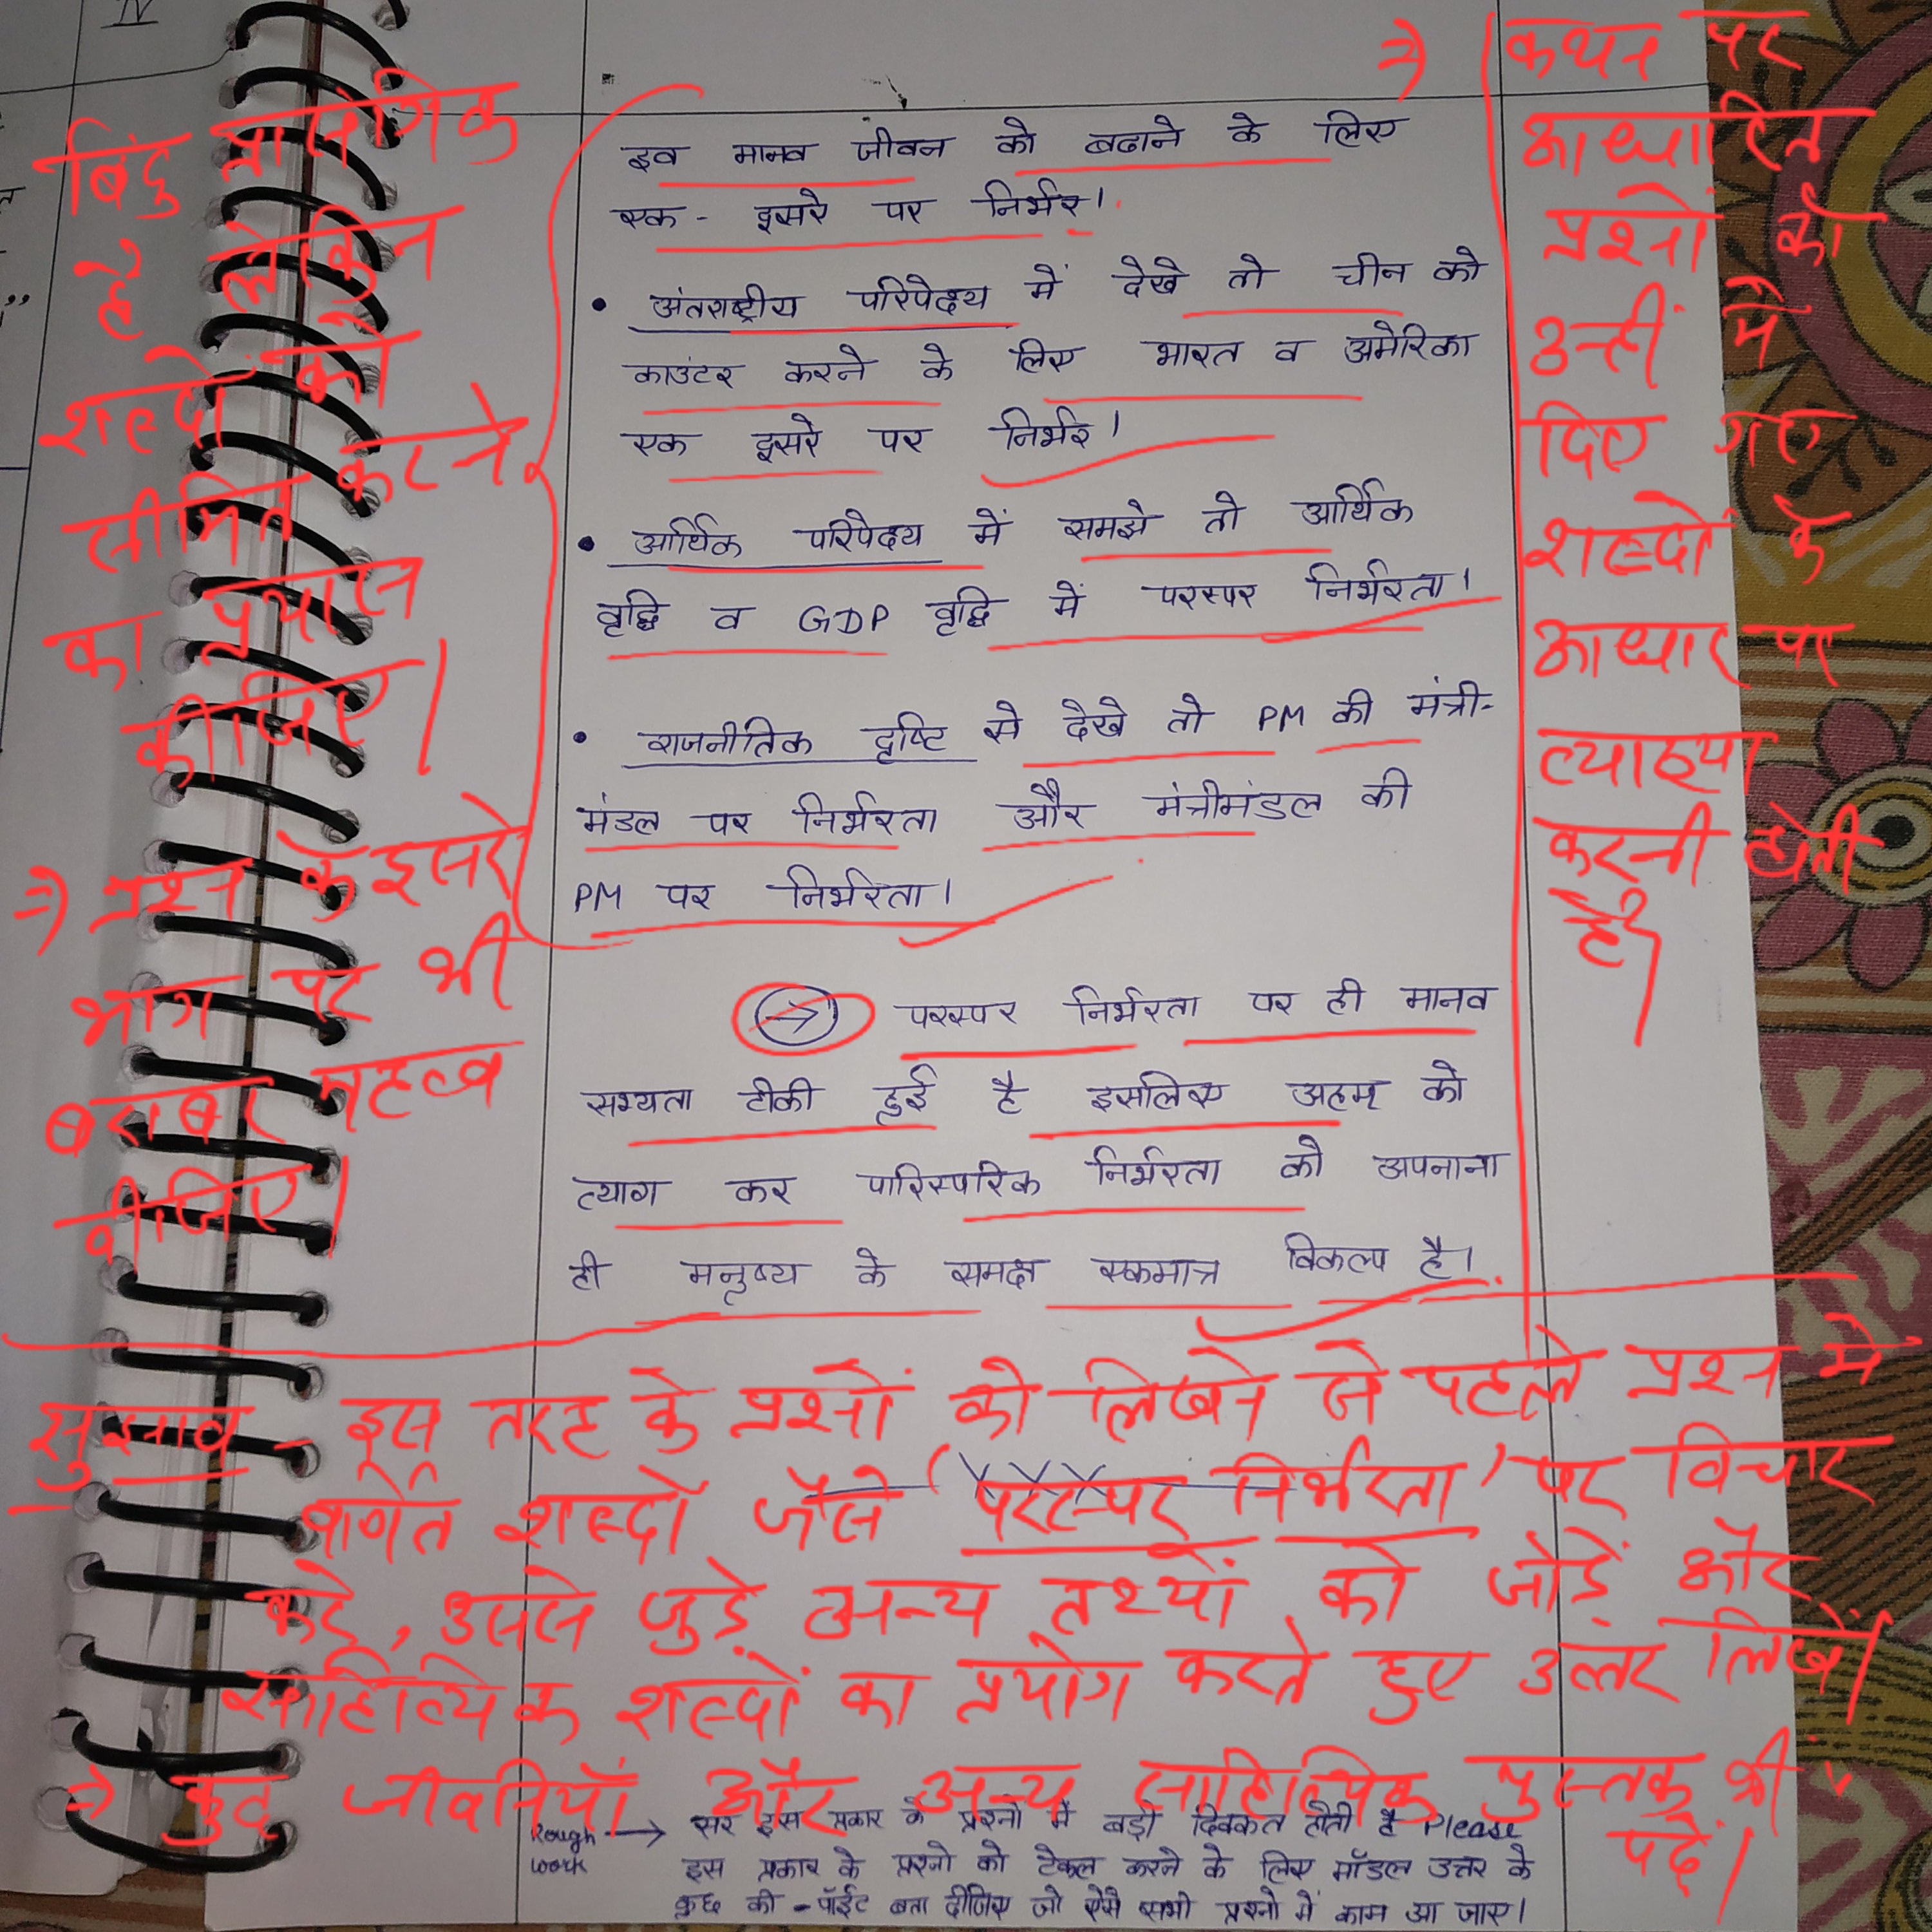 IV
इव मानव जीवन को बढाने के लिए
एक - दूसरे पर निर्भर।
• अंतराष्ट्रीय परिपेक्ष्य में देखे तो चीन को
काउंटर करने के लिए भारत व अमेरिका
एक दूसरे पर निर्भर।
• आर्थिक परिपेक्ष्य में समझे तो आर्थिक
वृद्धि व GDP वृद्धि में परस्पर निर्भरता।
• राजनीतिक दृष्टि से देखे तो PM की मंत्री-
मंडल पर निर्भरता और मंत्रीमंडल की
PM पर निर्भरता।
→ परस्पर निर्भरता पर ही मानव
सभ्यता टीकी हुई है इसलिए अहम् को
त्याग कर पारिस्परिक निर्भरता को अपनाना
ही मनुष्य के समक्ष एकमात्र विकल्प है।
बिंदु प्रासंगिक
है लेकिन
शब्दों को
सीमित करने
का प्रयास
कीजिए।
⇒ प्रश्न के दूसरे
भाग पर भी
बराबर महत्व
दीजिए।
⇒ कथन पर
आधारित
प्रश्नों को
उन्हीं में
दिए गए
शब्दों के
आधार पर
व्याख्या
करनी होती
है।
सुझाव - इस तरह के प्रश्नों को लिखने से पहले प्रश्न में
वर्णित शब्दों जैसे 'परस्पर निर्भरता' पर विचार
करें, उससे जुड़े अन्य तथ्यों को जोड़ें और
साहित्यिक शब्दों का प्रयोग करते हुए उत्तर लिखें।
⇒ कुछ जीवनियाँ और अन्य साहित्यिक पुस्तक भी
पढ़ें।
Rough work → सर इस प्रकार के प्रश्नो में बड़ी दिक्कत होती है Please
इस प्रकार के प्रश्नो को टेकल करने के लिए मॉडल उत्तर के
कुछ की - पॉईंट बता दीजिए जो ऐसे सभी प्रश्नो में काम आ जाए।